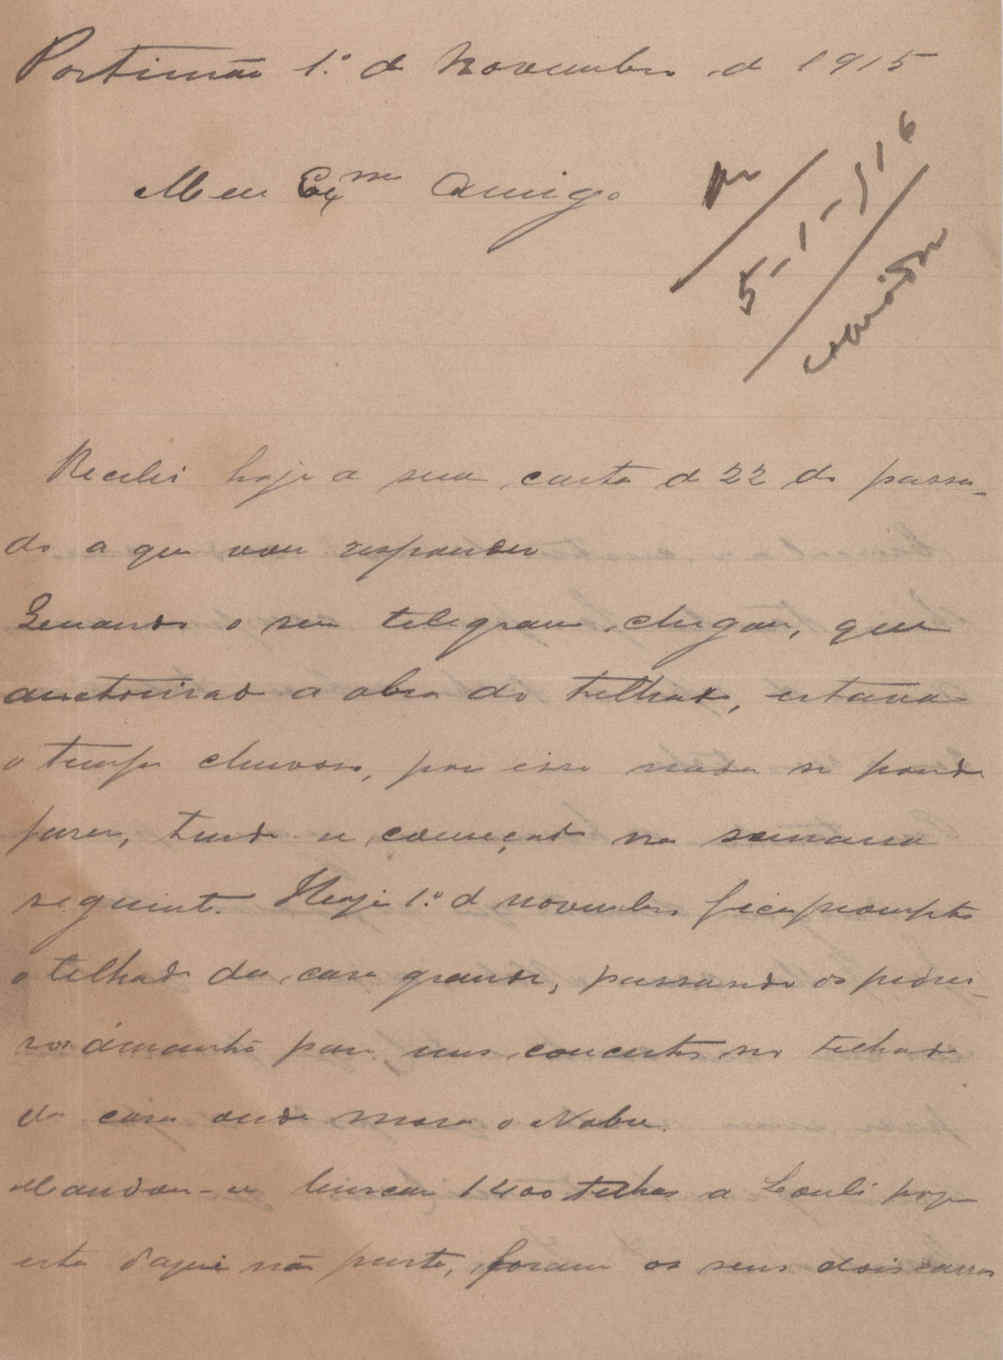 Portimão 1.º de Novembro de 1915
Meu Exmo Amigo
5-1-916
Recebi hoje a sua carta de 22 do passa-
do a que vou responder
Quando o seu telegrama chegou, que
auctorisado a obra do telhado, estava
o tempo chuvoso, por isso nada se poude
fazer, tendo se começado na semana
seguinte. Hoje 1.º de novembro fica prompto
o telhado da casa grande, passando os pedrei-
ros ámanhã para uns concertos no telhado
da casa onde mora o Nobre.
Mandou-se buscar 1400 telhas a Loulé porque
esta d'aqui não presta, foram os seus dois carros